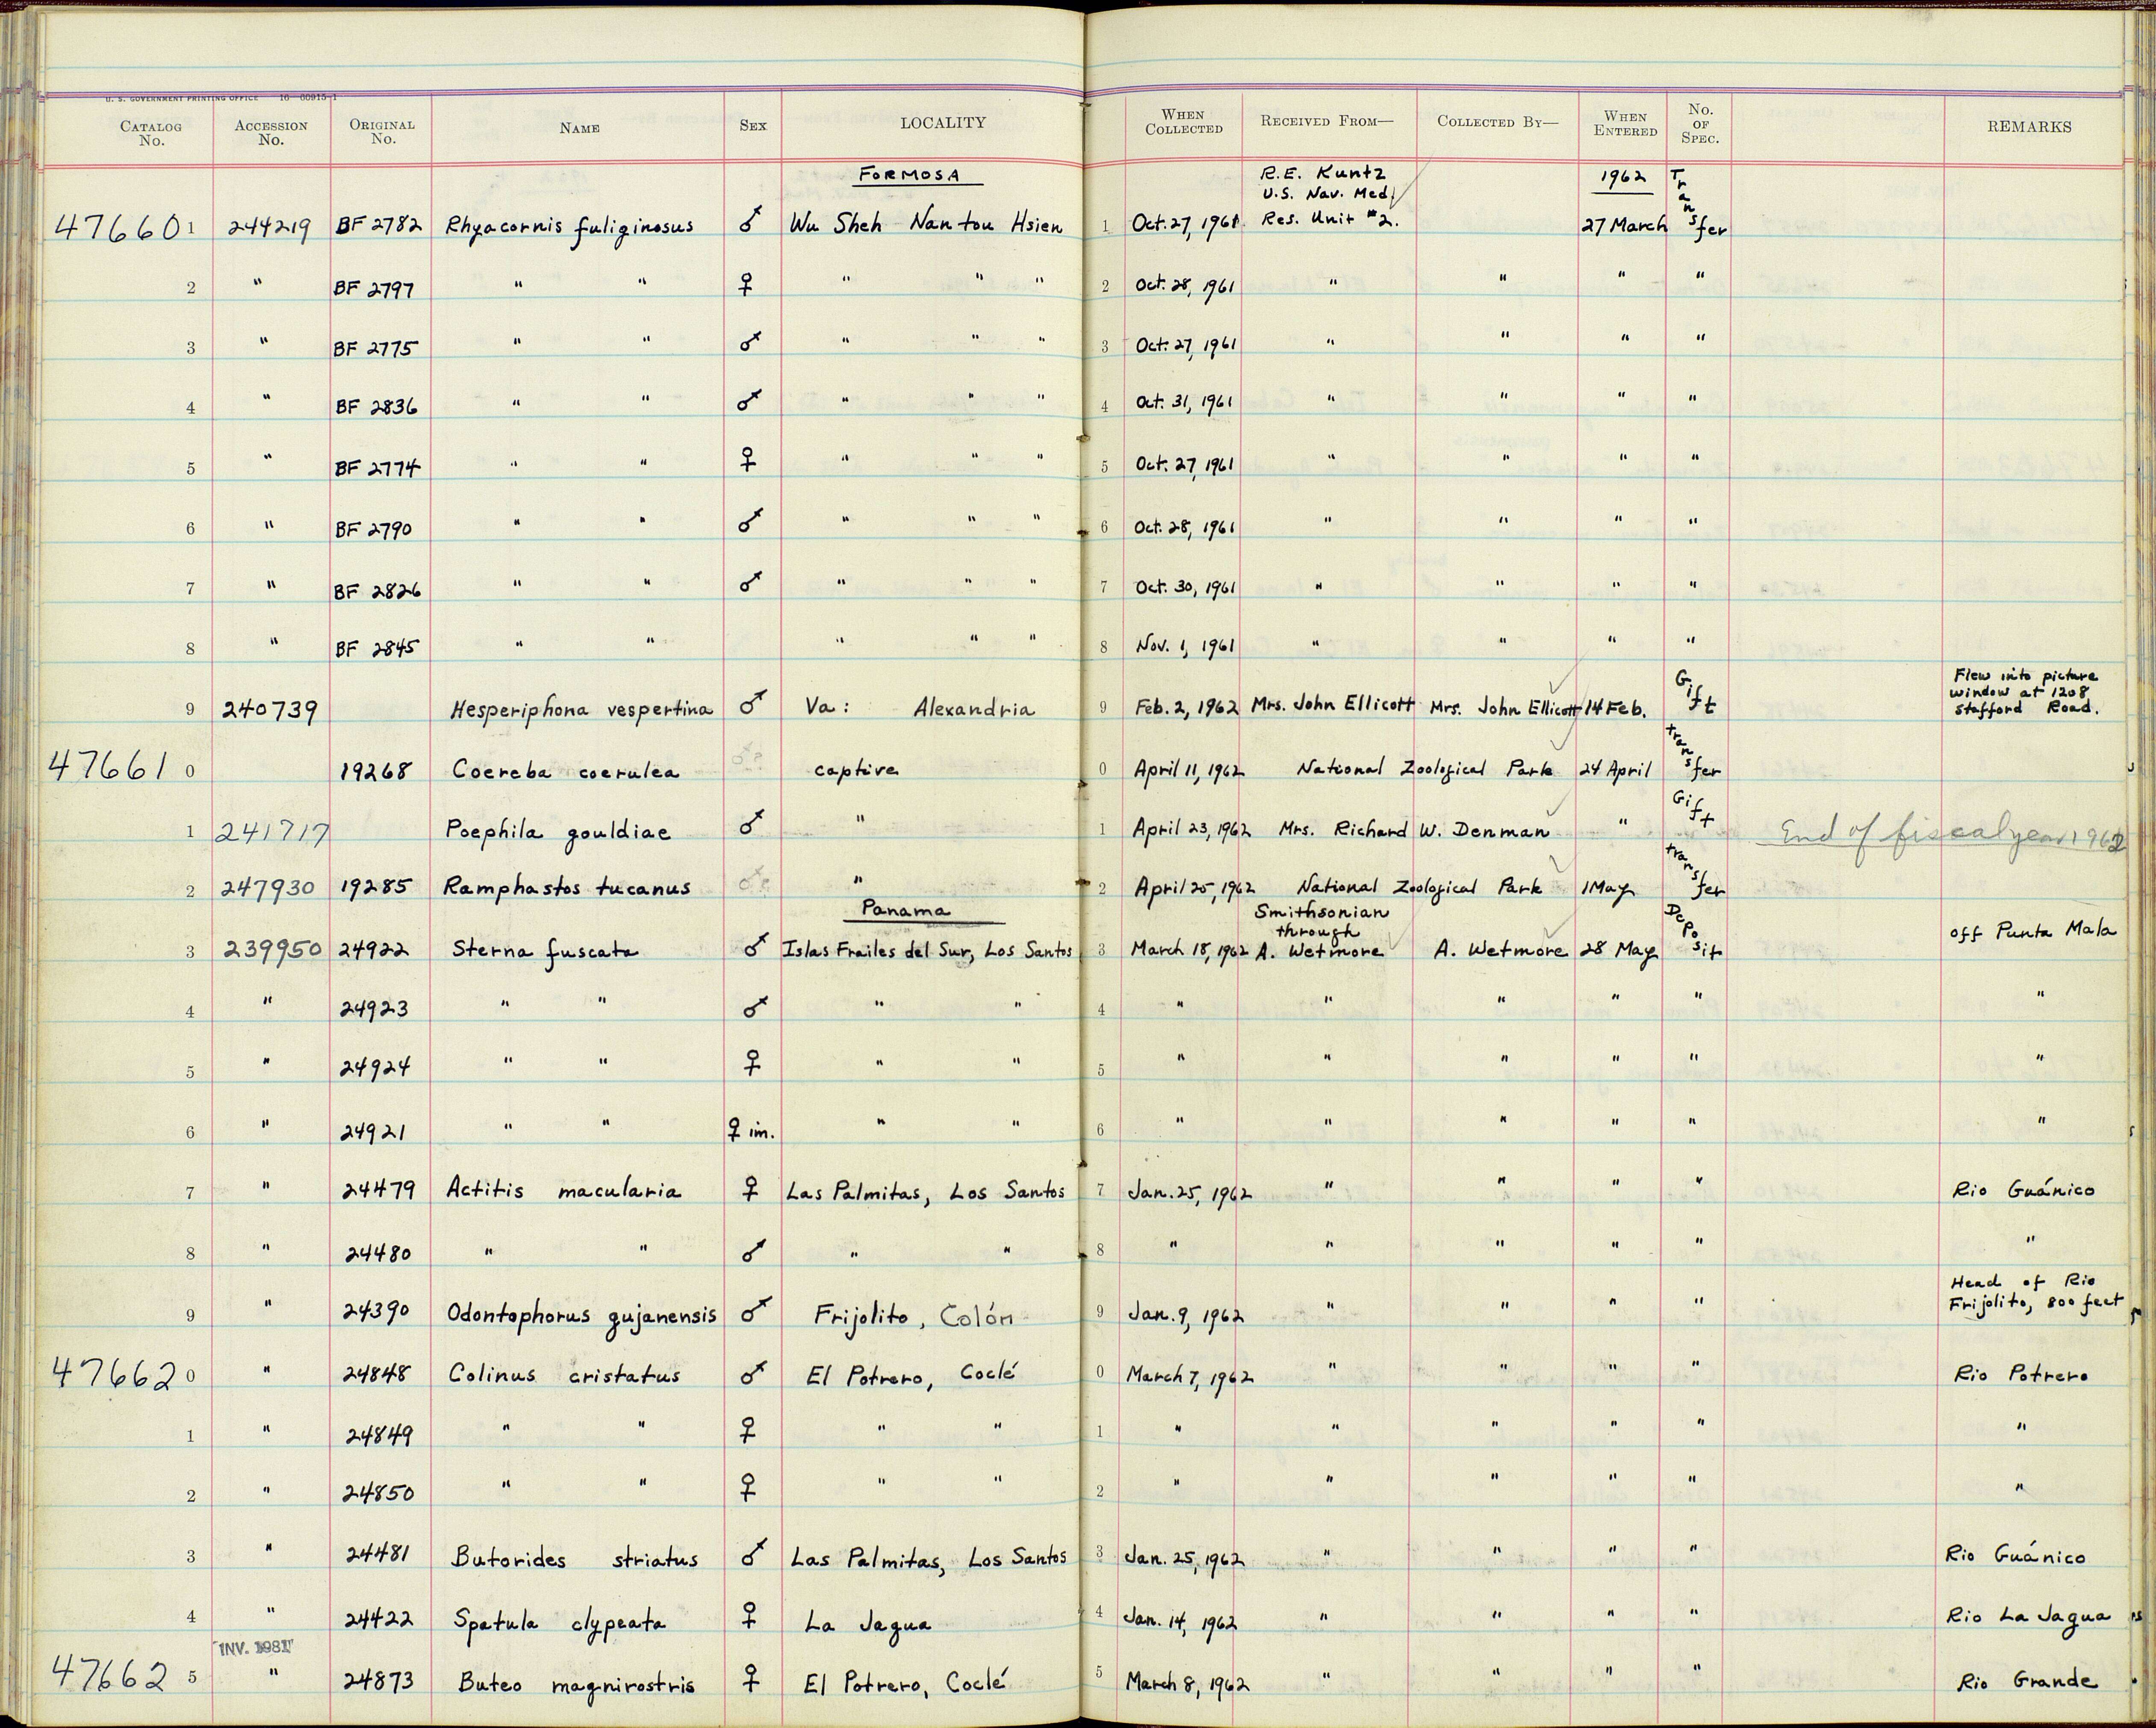 U. S. GOVERNMENT PRINTING OFFICE 16—60915-1
CATALOG No. ACCESSION No. ORIGINAL No. NAME SEX LOCALITY WHEN COLLECTED RECEIVED FROM— COLLECTED BY— WHEN ENTERED No. OF SPEC. REMARKS
FORMOSA R.E. Kuntz 1962
U.S. Nav. Med.
476601 244219 BF 2782 Rhyacornis fuliginosus ♂ Wu Sheh Nan tou Hsien 1 Oct. 27, 1961 Res. Unit #2. 27 March Transfer
2 " BF 2797 " " ♀ " " " 2 Oct. 28, 1961 " " " "
3 " BF 2775 " " ♂ " " " 3 Oct. 27, 1961 " " " "
4 " BF 2836 " " ♂ " " " 4 Oct. 31, 1961 " " " "
5 " BF 2774 " " ♀ " " " 5 Oct. 27, 1961 " " " "
6 " BF 2790 " " ♂ " " " 6 Oct. 28, 1961 " " " "
7 " BF 2826 " " ♂ " " " 7 Oct. 30, 1961 " " " "
8 " BF 2845 " " " " " 8 Nov. 1, 1961 " " " "
9 240739 Hesperiphona vespertina ♂ Va: Alexandria 9 Feb. 2, 1962 Mrs. John Ellicott Mrs. John Ellicott 14 Feb. Gift Flew into picture
window at 1208
Stafford Road.
476610 19268 Coereba coerulea captive 0 April 11, 1962 National Zoological Park 24 April transfer
1 241717 Poephila gouldiae ♂ " 1 April 23, 1962 Mrs. Richard W. Denman " Gift End of fiscal year 1962
2 247930 19285 Ramphastos tucanus " 2 April 25, 1962 National Zoological Park 1 May transfer
Panama Smithsonian
through
3 239950 24922 Sterna fuscata ♂ Islas Frailes del Sur, Los Santos 3 March 18, 1962 A. Wetmore A. Wetmore 28 May Deposit off Punta Mala
4 " 24923 " " ♂ " " 4 " " " " " "
5 " 24924 " " ♀ " " 5 " " " " " "
6 " 24921 " " ♀ im. " " 6 " " " " " "
7 " 24479 Actitis macularia ♀ Las Palmitas, Los Santos 7 Jan. 25, 1962 " " " " Rio Guánico
8 " 24480 " " ♂ " " 8 " " " " " "
Head of Rio
9 " 24390 Odontophorus gujanensis ♂ Frijolito, Colón 9 Jan. 9, 1962 " " " " Frijolito, 800 feet
476620 " 24848 Colinus cristatus ♂ El Potrero, Coclé 0 March 7, 1962 " " " " Rio Potrero
1 " 24849 " " ♀ " " 1 " " " " " "
2 " 24850 " " ♀ " " 2 " " " " " "
3 " 24481 Butorides striatus ♂ Las Palmitas, Los Santos 3 Jan. 25, 1962 " " " " Rio Guánico
4 " 24422 Spatula clypeata ♀ La Jagua 4 Jan. 14, 1962 " " " " Rio La Jagua
INV. 1981
476625 " 24873 Buteo magnirostris ♀ El Potrero, Coclé 5 March 8, 1962 " " " " Rio Grande